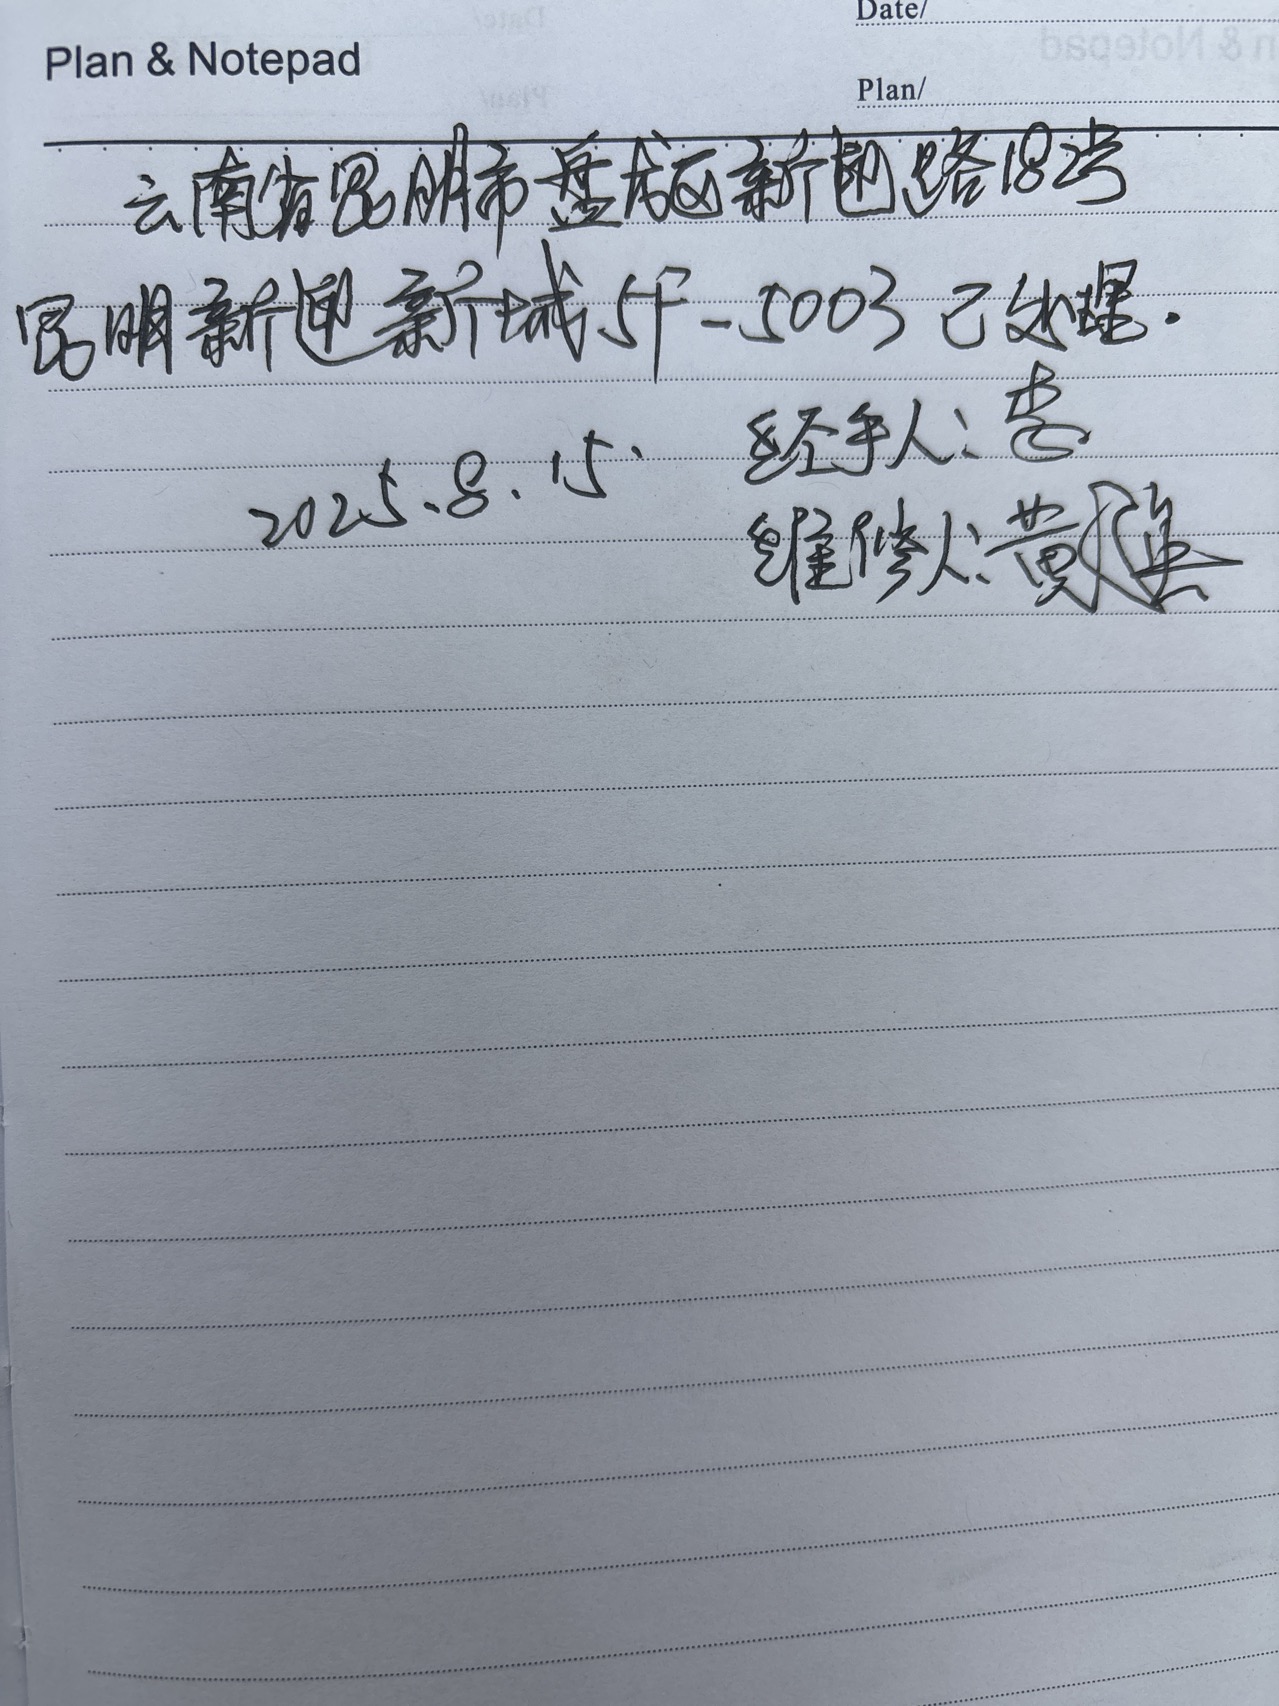 Date/
Plan & Notepad
Plan/
云南省昆明市盘龙区新迎路18号
昆明新迎新城5F-5003已处理.
经手人: 李
2025.8.15.
维修人: 黄